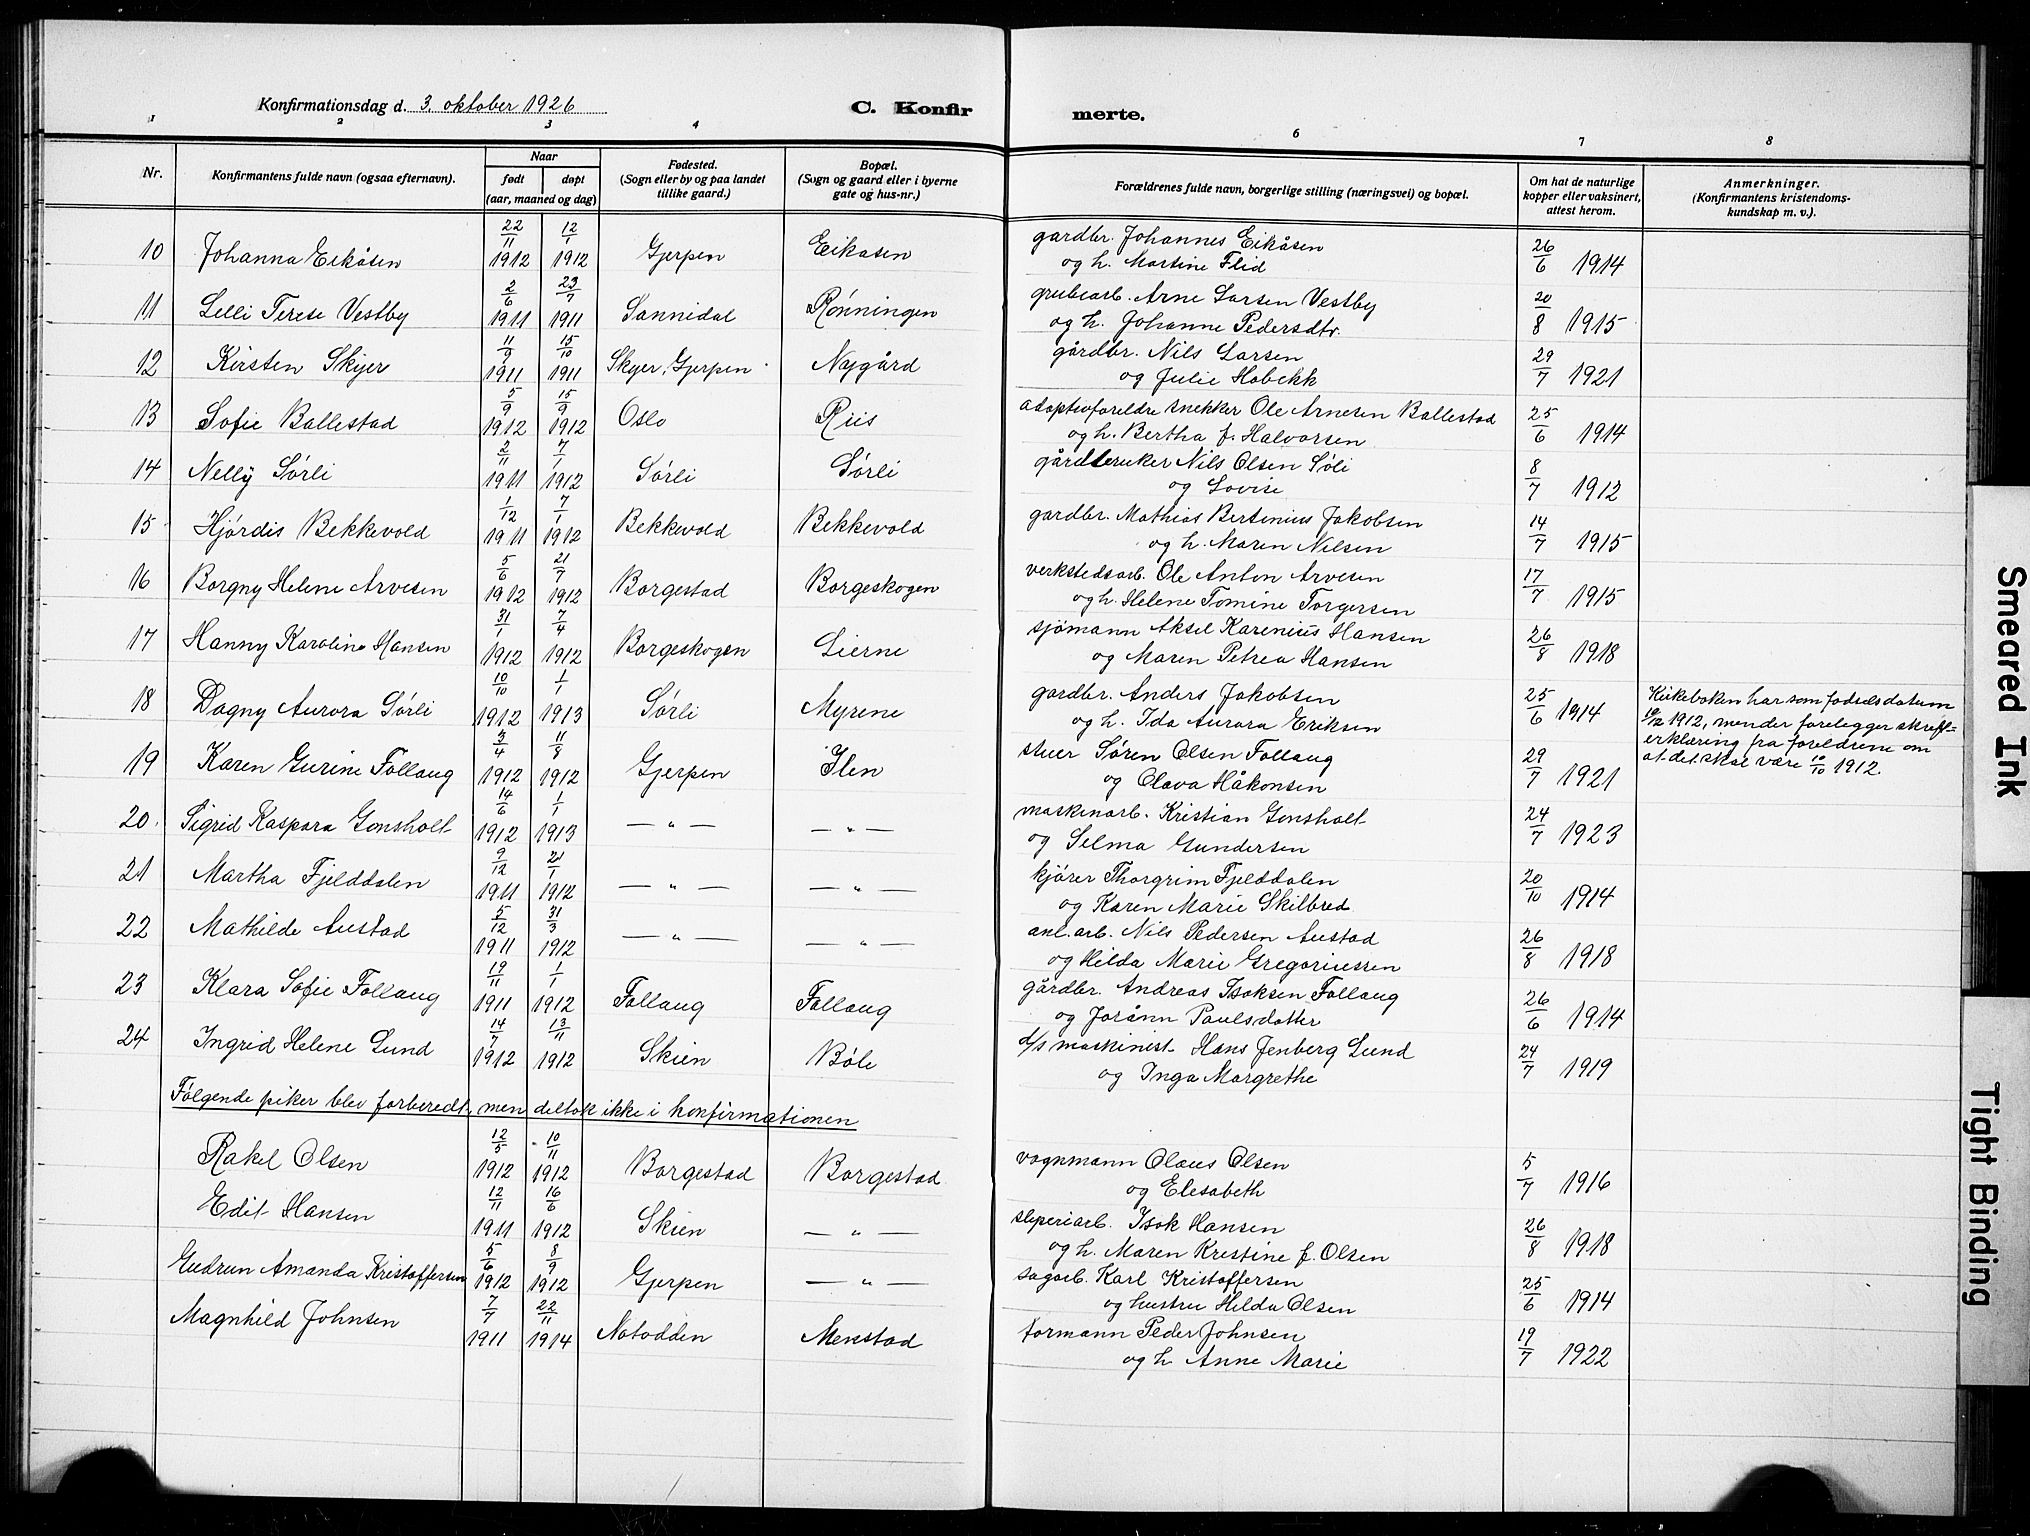 Konfirmationsdag d. 3. oktober 1926 C. Konfir merte.
1 2 3 4 5 6 7 8
Nr. Konfirmantens fulde navn (ogsaa efternavn). Naar født døpt (aar, maaned og dag) Fødested. (Sogn eller by og paa landet tillike gaard.) Bopæl. (Sogn og gaard eller i byerne gate og hus-nr.) Forældrenes fulde navn, borgerlige stilling (næringsvei) og bopæl. Om hat de naturlige kopper eller vaksinert, attest herom. Anmerkninger. (Konfirmantens kristendoms-kundskap m. v.).
10 Johanna Eikåsen 22/11 1912 12/1 1912 Gjerpen Eikasen gardbr. Johannes Eikåsen 26/6 1914
og h. Martine Flid
11 Lelli Terese Vestby 2/6 1911 23/7 1911 Sannidal Rønningen grubearb. Arne Larsen Vestby 20/8 1915
og h. Johanne Pedersdtr.
12 Kirsten Skyer 11/9 1911 15/10 1911 Skyer, Gjerpen Nygård gårdbr. Nils Larsen 29/7 1921
og Julie Hobekk
13 Sofie Ballestad 5/9 1912 15/9 1912 Oslo Riis adoptivforeldre snekker Ole Arnesen Ballestad 25/6 1914
og h. Bertha f. Halvorsen
14 Nelly Sørli 2/11 1911 7/1 1912 Sørli Sørli gårdbruker Nils Olsen Søli 8/7 1912
og Lovise
15 Hjørdis Bekkevold 1/12 1911 7/1 1912 Bekkevold Bekkevold gardbr. Mathias Bertinius Jakobsen 14/7 1915
og h. Maren Nilsen
16 Borgny Helene Arvesen 5/6 1912 21/7 1912 Borgestad Borgeskogen verkstedsarb. Ole Anton Arvesen 17/7 1915
og h. Helene Tomine Torgersen
17 Hanny Karoline Hansen 31/1 1912 7/4 1912 Borgeskogen Lierne sjømann Aksel Karenius Hansen 26/8 1918
og Maren Petrea Hansen
18 Dagny Aurora Sørli 10/10 1912 1/1 1913 Sørli Myrene gardbr. Anders Jakobsen 25/6 1914 Kirkeboken har som fødselsdatum
og h. Ida Aurora Eriksen 1912, men der forelegger skreft-
erklæring fra foreldrene om
at det skal være 10/10 1912.
19 Karen Gurine Follaug 3/4 1912 11/8 1912 Gjerpen Ilen stuer Søren Olsen Follaug 29/7 1921
og Olava Håkonsen
20. Sigrid Kaspara Gonsholt 14/6 1912 1/1 1913 — " — — " — maskinarb. Kristian Gonsholt 24/7 1923
og Selma Gundersen
21 Martha Fjelddalen 9/12 1911 21/1 1912 — " — — " — kjører Thorgrim Fjelddalen 20/10 1914
og Karen Marie Skilbred
22 Mathilde Austad 5/12 1911 31/3 1912 — " — — " — anl. arb. Nils Pedersen Austad 26/8 1918
og Hilda Marie Gregoriussen
23 Klara Sofie Follaug 19/11 1911 1/1 1912 Follaug Follaug gårdbr. Andreas Isaksen Follaug 26/6 1914
og Jorånn Paulsdatter
24 Ingrid Helene Lund 14/7 1912 13/11 1912 Skien Bøle d/s maskinist Hans Jenberg Lund 24/7 1919
og Inga Margrethe
Følgende piker blev forberedt, men deltok ikke i konfirmationen
Rakel Olsen 12/5 1912 10/11 1912 Borgestad Borgestad vognmann Olaus Olsen 5/7 1916
og Elesabeth
Edit Hansen 12/11 1911 16/6 1912 Skien — " — sliperiarb. Isak Hansen 26/8 1918
og h. Maren Kristine f. Olsen
Gudrun Amanda Kristoffersen 5/6 1912 8/9 1912 Gjerpen — " — sagarb. Karl Kristoffersen 25/6 1914
og hustru Hilda Olsen
Magnhild Johnsen 7/7 1911 22/11 1914 Notodden Menstad formann Peder Johnsen 19/7 1922
og h Anne Marie
Smeared Ink
Tight Binding